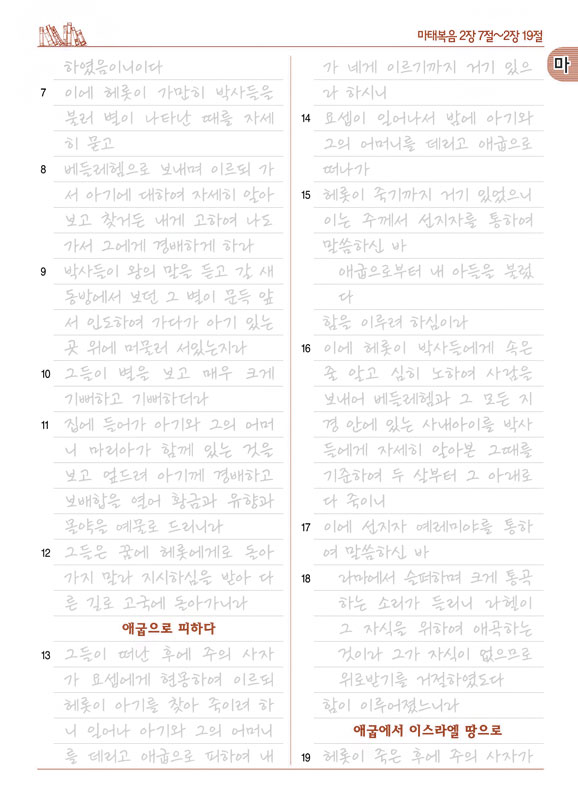 마태복음 2장 7절~2장 19절
마
하였음이니이다
7 이에 헤롯이 가만히 박사들을
불러 별이 나타난 때를 자세
히 묻고
8 베들레헴으로 보내며 이르되 가
서 아기에 대하여 자세히 알아
보고 찾거든 내게 고하여 나도
가서 그에게 경배하게 하라
9 박사들이 왕의 말을 듣고 갈 새
동방에서 보던 그 별이 문득 앞
서 인도하여 가다가 아기 있는
곳 위에 머물러 서있는지라
10 그들이 별을 보고 매우 크게
기뻐하고 기뻐하더라
11 집에 들어가 아기와 그의 어머
니 마리아가 함께 있는 것을
보고 엎드려 아기께 경배하고
보배합을 열어 황금과 유향과
몰약을 예물로 드리니라
12 그들은 꿈에 헤롯에게로 돌아
가지 말라 지시하심을 받아 다
른 길로 고국에 돌아가니라
애굽으로 피하다
13 그들이 떠난 후에 주의 사자
가 요셉에게 현몽하여 이르되
헤롯이 아기를 찾아 죽이려 하
니 일어나 아기와 그의 어머니
를 데리고 애굽으로 피하여 내
가 네게 이르기까지 거기 있으
라 하시니
14 요셉이 일어나서 밤에 아기와
그의 어머니를 데리고 애굽으로
떠나가
15 헤롯이 죽기까지 거기 있었으니
이는 주께서 선지자를 통하여
말씀하신 바
애굽으로부터 내 아들을 불렀
다
함을 이루려 하심이라
16 이에 헤롯이 박사들에게 속은
줄 알고 심히 노하여 사람을
보내어 베들레헴과 그 모든 지
경 안에 있는 사내아이를 박사
들에게 자세히 알아본 그때를
기준하여 두 살부터 그 아래로
다 죽이니
17 이에 선지자 예레미야를 통하
여 말씀하신 바
18 라마에서 슬퍼하며 크게 통곡
하는 소리가 들리니 라헬이
그 자식을 위하여 애곡하는
것이라 그가 자식이 없으므로
위로받기를 거절하였도다
함이 이루어졌느니라
애굽에서 이스라엘 땅으로
19 헤롯이 죽은 후에 주의 사자가